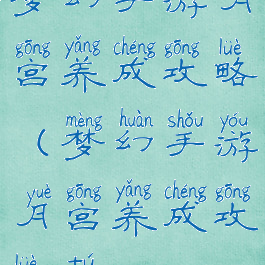 梦幻手游月
gōng yǎng chéng gōng lüè
宫养成攻略
mèng huàn shǒu yóu
(梦幻手游
yuè gōng yǎng chéng gōng
月宫养成攻
lüè tú